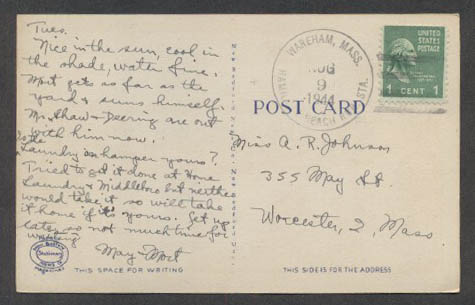 Tues.
Nice in the sun, cool in
the shade, water fine.
Mort gets as far as the
yard & suns himself.
Mr. Shaw & Deering are out
with him now.
Is the
Laundry in hamper yours?
Tried to get it done at Home
Laundry & Middleboro but neither
would take it so will take
it home if it's yours. Get up
late so not much time for
writing.
May & Mort
THIS SPACE FOR WRITING
WAREHAM, MASS.
AUG
9
1944
BEACH STA.
UNITED
STATES
POSTAGE
1 CENT 1
POST CARD
Miss A. R. Johnson
355 May St.
Worcester, 2, Mass
THIS SIDE IS FOR THE ADDRESS